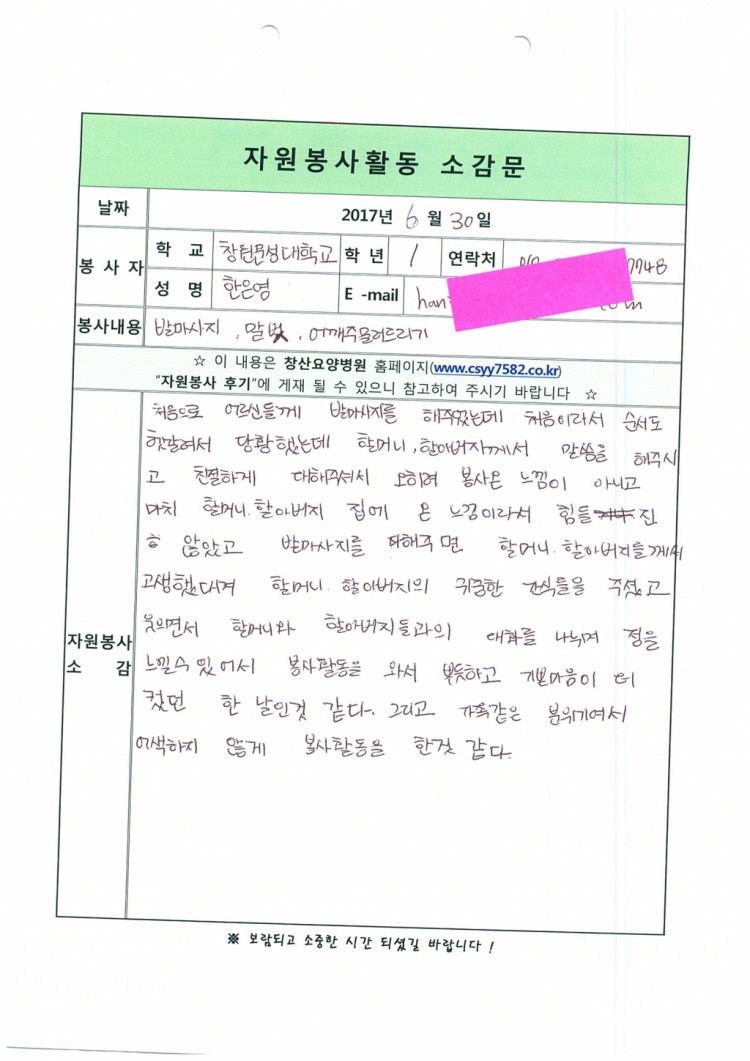 자원봉사활동 소감문
날짜 2017년 6 월 30 일
봉사자 학교 창원문성대학교 학년 1 연락처 7748
성명 한은영 E -mail han
봉사내용 발마사지, 말벗, 어깨주물러드리기
☆ 이 내용은 창산요양병원 홈페이지(www.csyy7582.co.kr)
"자원봉사 후기"에 게재 될 수 있으니 참고하여 주시기 바랍니다 ☆
자원봉사 소감
처음으로 어르신들께 발마사지를 해주었는데 처음이라서 순서도
헷갈려서 당황했는데 할머니, 할아버지께서 말씀을 해주시
고 친절하게 대해주셔서 오히려 봉사온 느낌이 아니고
마치 할머니. 할아버지 집에 온 느낌이라서 힘들진
않았고 발마사지를 해주면 할머니. 할아버지들께서
고생했다며 할머니. 할아버지의 귀중한 간식들을 주셨고
웃으면서 할머니와 할아버지들과의 대화를 나누며 정을
느낄수 있어서 봉사활동을 와서 뿌듯하고 기쁜마음이 더
컸던 한 날인것 같다. 그리고 가족같은 분위기여서
어색하지 않게 봉사활동을 한것 같다.
※ 보람되고 소중한 시간 되셨길 바랍니다 !